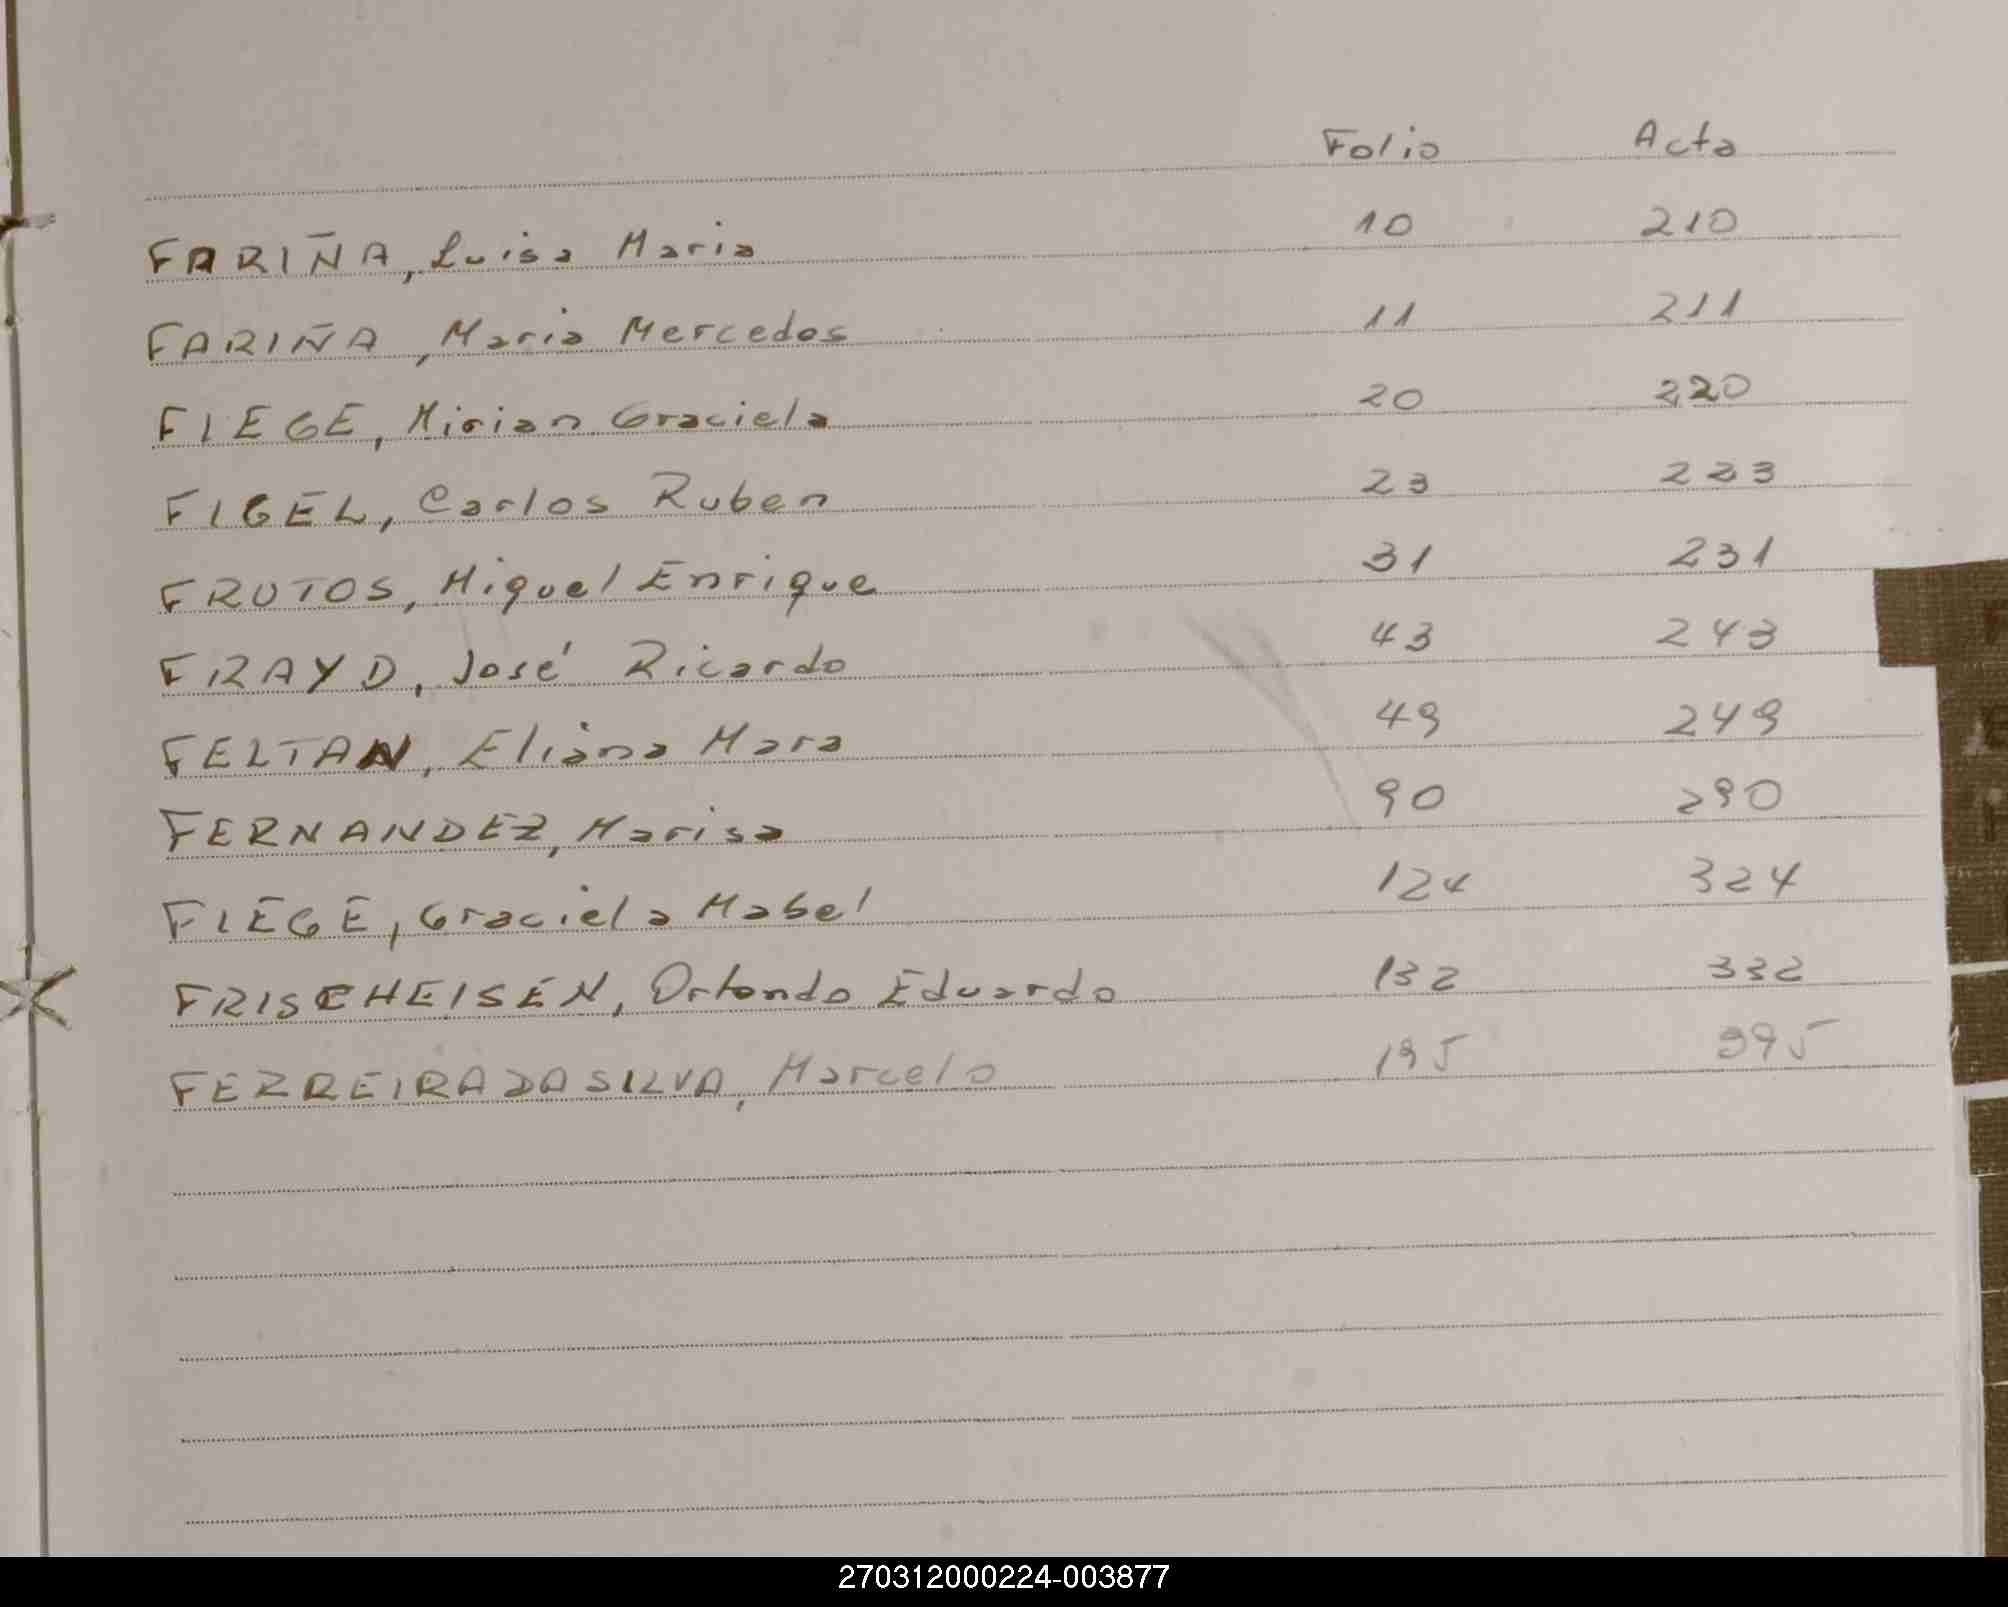 Folio Acta
FARIÑA, Luisa Maria 10 210
FARIÑA, Maria Mercedes 11 211
FIEGE, Mirian Graciela 20 220
FIGEL, Carlos Ruben 23 223
FRUTOS, Miguel Enrique 31 231
FRAYD, José Ricardo 43 243
FELTAN, Eliana Mara 49 249
FERNANDEZ, Marisa 90 290
FIEGE, Graciela Mabel 124 324
FRISCHEISEN, Orlando Eduardo 132 332
FERREIRA DA SILVA, Marcelo 195 395
270312000224-003877